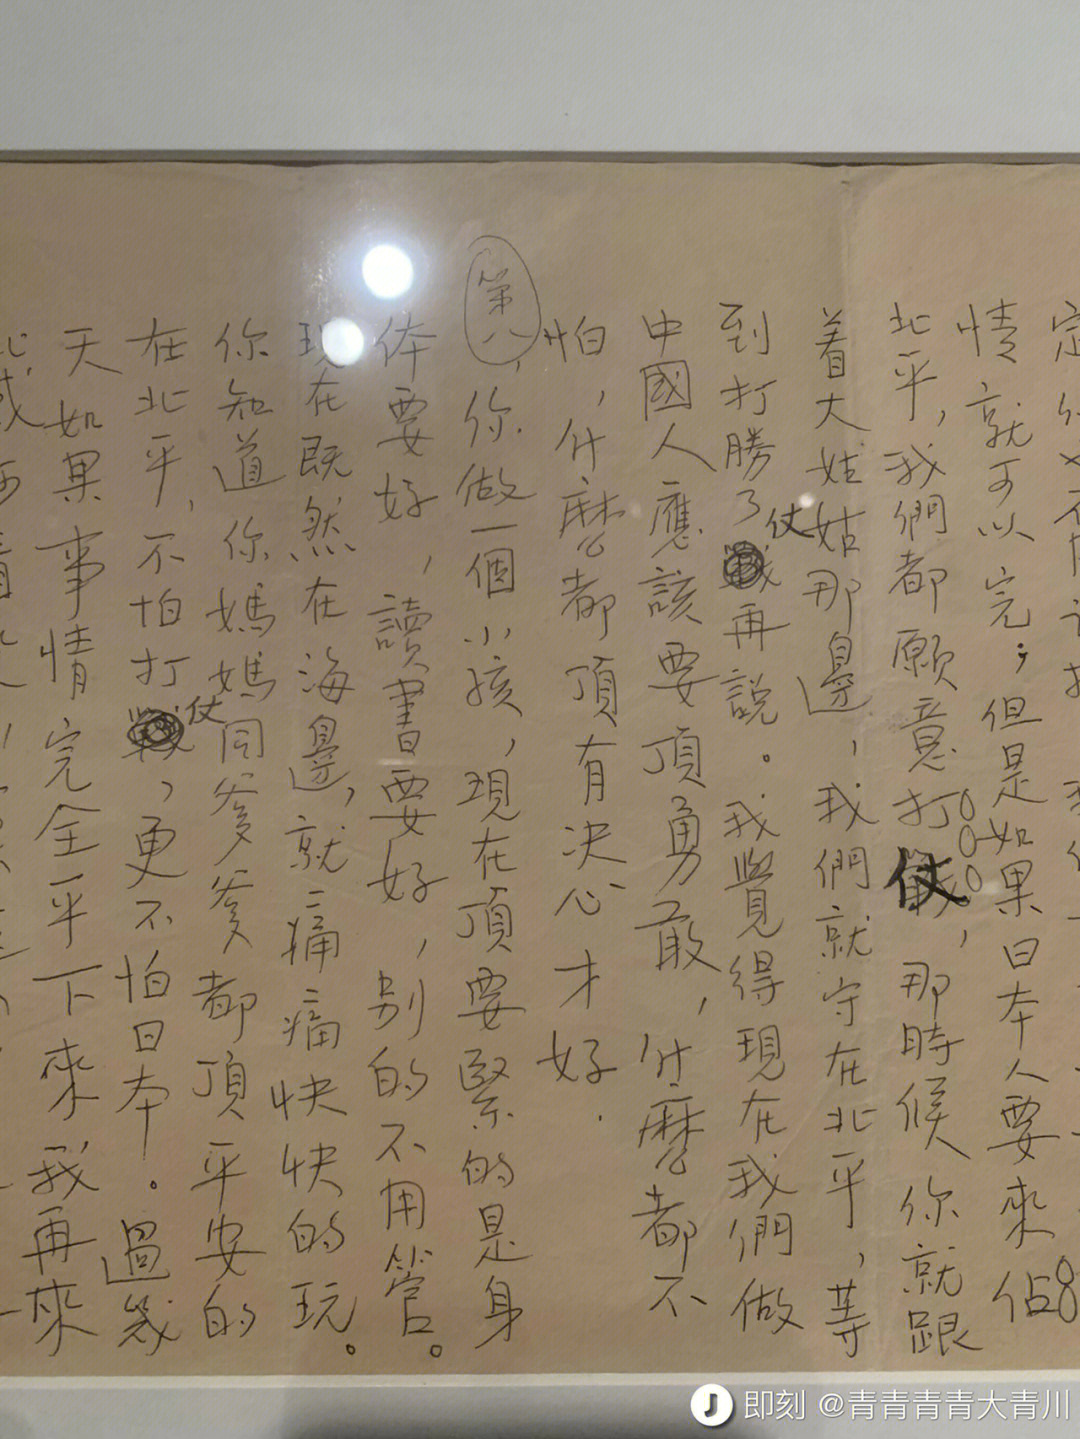 情就可以完；但是如果日本人要來佔
北平，我們都願意打仗，那時候你就跟
着大姑姑那邊，我們就守在北平，等
到打勝了仗再説。我覺得現在我們做
中國人應該要頂勇敢，什麽都不
怕，什麽都頂有決心才好．
第八，你做一個小孩，現在頂要緊的是身
体要好，讀書要好，别的不用管。
現在既然在海邊，就痛痛快快的玩。
你知道你媽媽同爹爹都頂平安的
在北平，不怕打仗，更不怕日本。過幾
天如果事情完全平下來我再來
即刻 @青青青青大青川